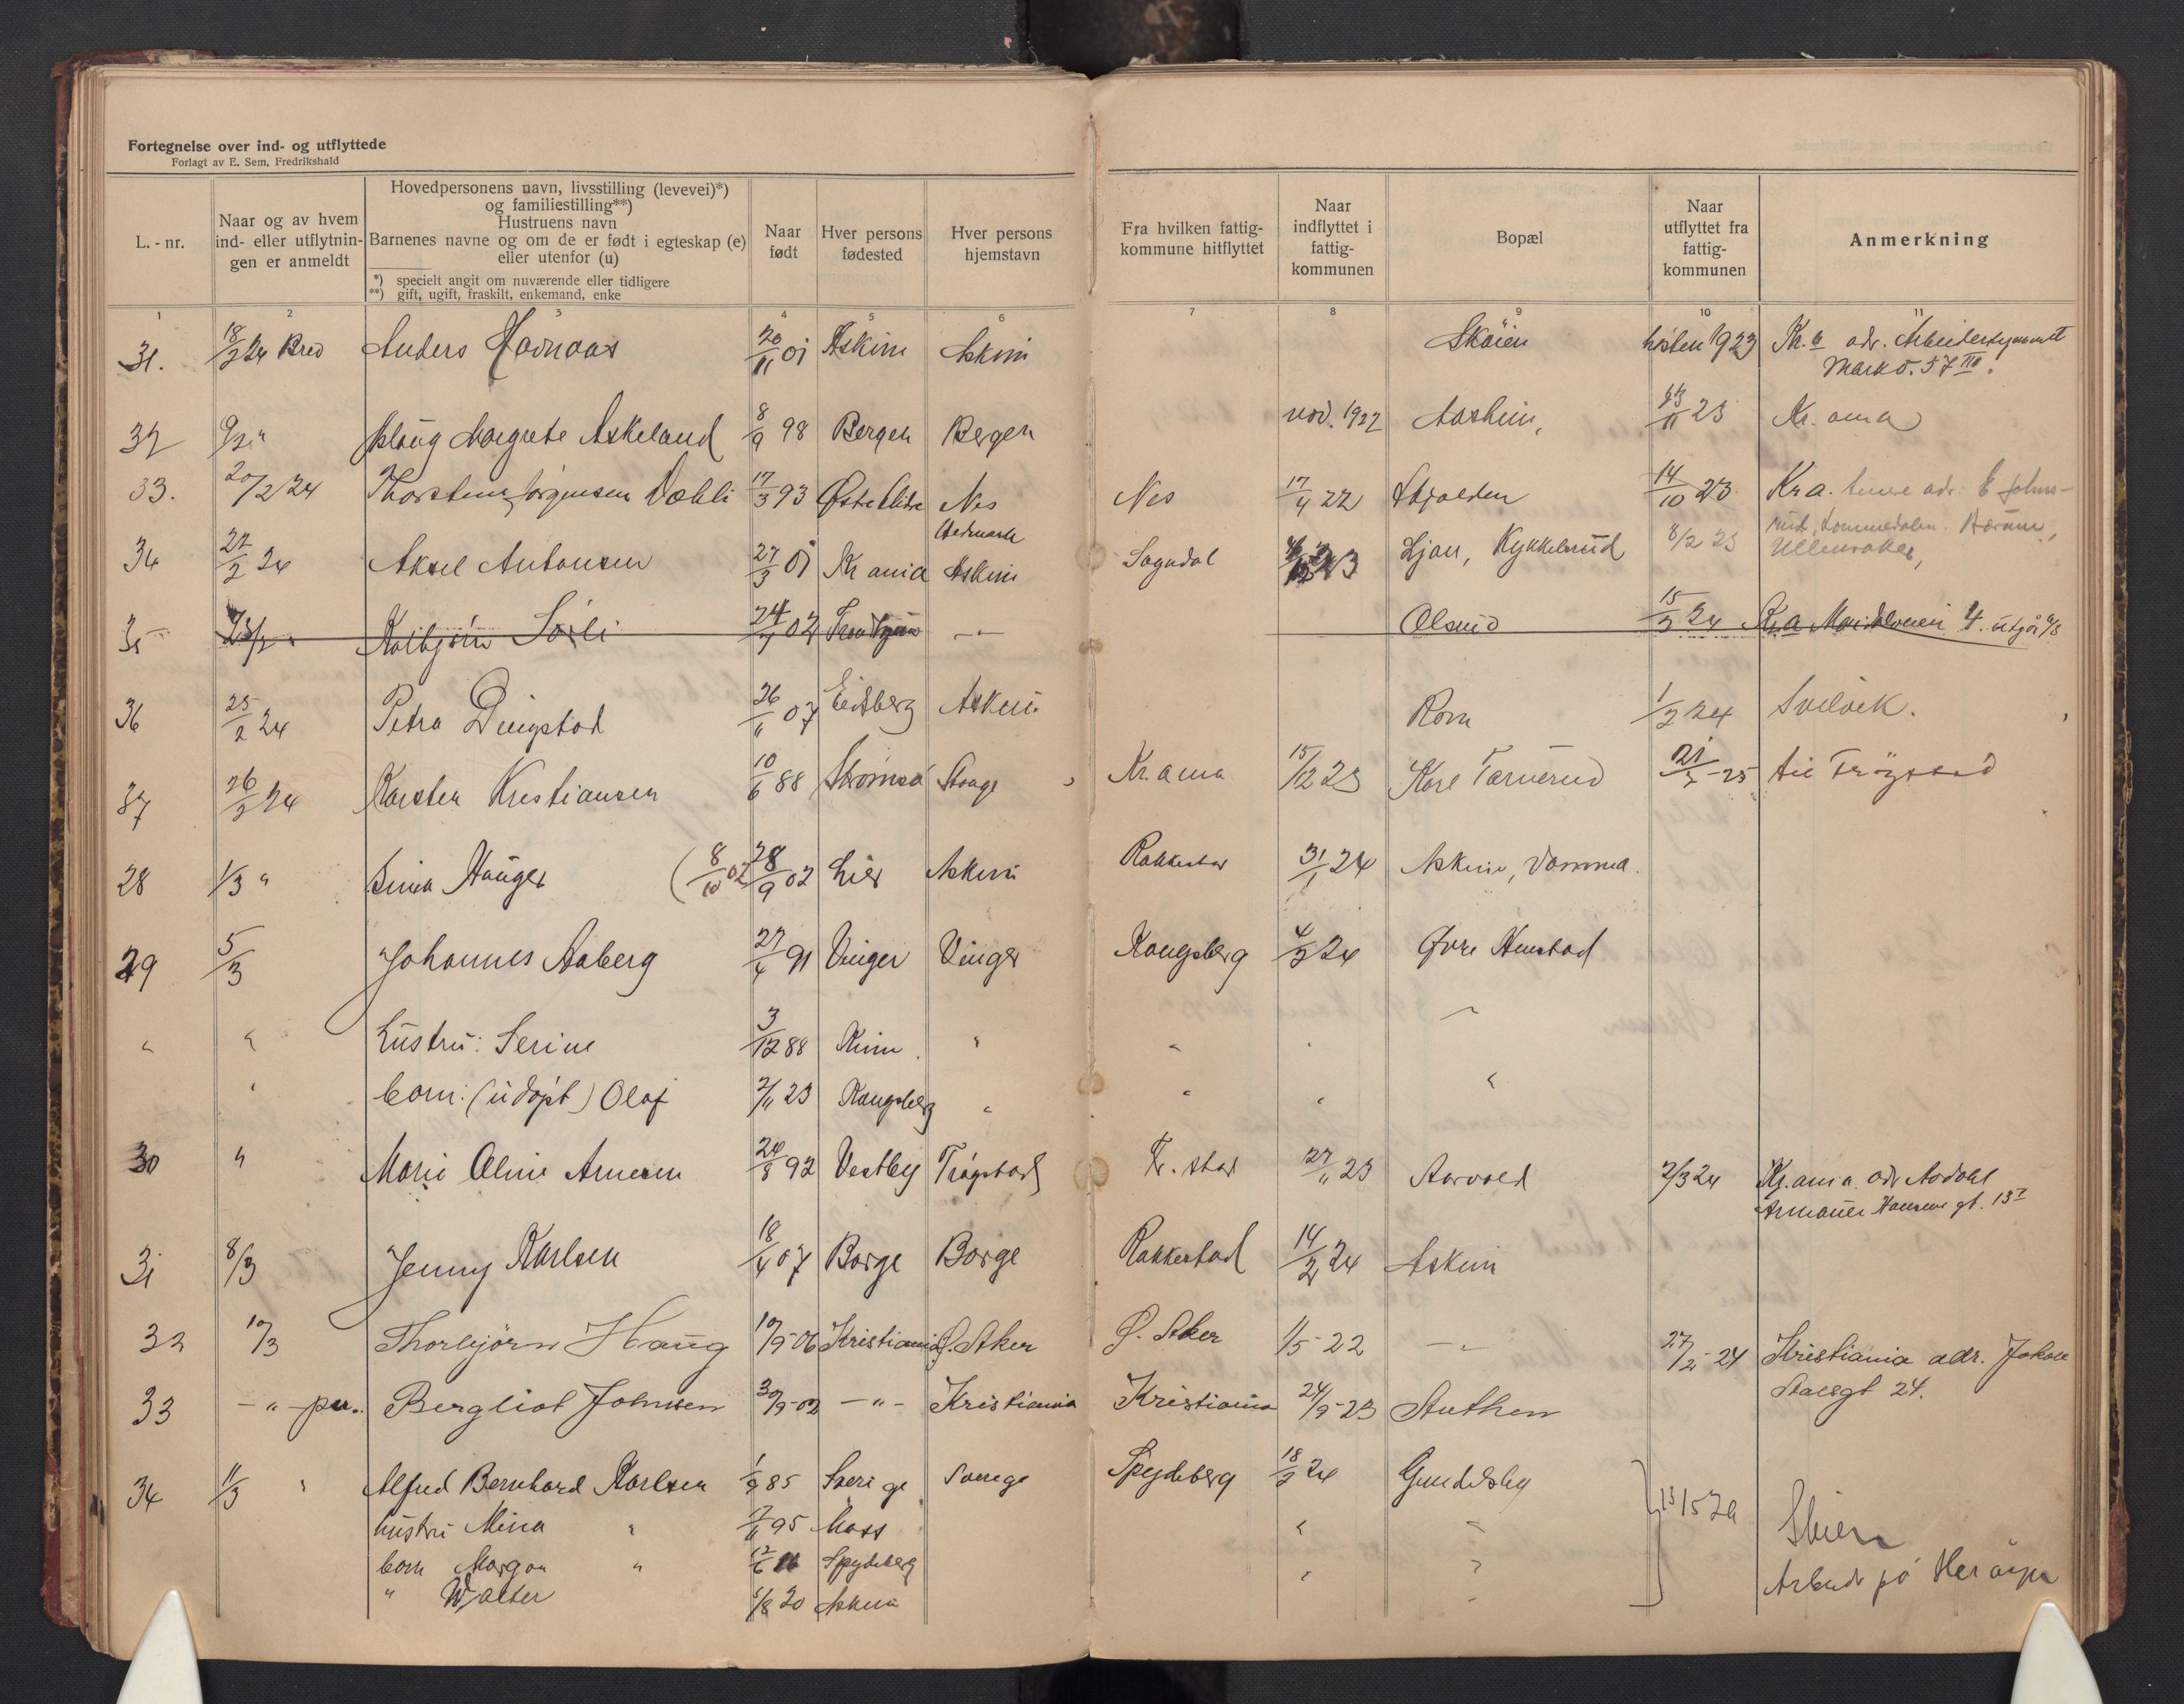 Fortegnelse over ind- og utflyttede
Forlagt av E. Sem, Fredrikshald
L. - nr.
Naar og av hvem ind- eller utflytnin-gen er anmeldt
Hovedpersonens navn, livsstilling (levevei)*)
og familiestilling**)
Hustruens navn
Barnenes navne og om de er født i egteskap (e)
eller utenfor (u)
*) specielt angit om nuværende eller tidligere
**) gift, ugift, fraskilt, enkemand, enke
Naar født
Hver persons fødested
Hver persons hjemstavn
Fra hvilken fattig-kommune hitflyttet
Naar indflyttet i fattig-kommunen
Bopæl
Naar utflyttet fra fattig-kommunen
Anmerkning
1 2 3 4 5 6 7 8 9 10 11
31. 18/2 24 Brev Anders Havnaas 20/11 01 Askim Askim Skøien høsten 1923 Kr.a adr.
Markv. 57 III.
32 9/2 " Margrete Askeland 8/9 98 Bergen Bergen nov. 1922 Aasheim, 23/11 23 Kr. ania
33. 20/2 24 Thorstein Jørgensen Dæhli 17/3 93 Østre Nes Nes 17/4 22 14/10 23 Kr a. adr. E Johns-
Hedmark
rud, Lommedalen. Bærum,
34 22/2 24 Aksel Antonsen 27/3 01 Kr ania Askim Sogndal Ljan, Kykkelsrud 8/2 23 Ullensaker,
35 23/2 " Kolbjørn Sørli 24/7 02 Trondhjem - " - Olsrud 15/2 24 Kr.a Maridalsveien 4. utgår
36 25/2 24 Petra Dingstad 26/11 07 Eidsberg Askim Rom 1/2 24 Svelvik.
37 26/2 24 Karsten Kristiansen 10/6 88 Stange Kr.ania 15/12 23 Karl Tarverud 21/7 -25 til Trøgstad
28 1/3 " Hauger (8/10 02 28/9 02 Lier Askim Rakkestad 31/1 24 Askim, Vamma.
29 5/3 Johannes Aaberg 27/4 91 Vinger Vinger Kongsberg 4/3 24 Øvre Henstad
" " hustru: Serine 3/12 88 " " " "
" barn: (udøpt) Olaf 2/11 23 Kongsberg " " " "
30 " Marie Oline Arnesen 20/8 92 Vestby Trøgstad Fr. stad 27/11 23 Aarvold 2/3 24 Kr.ania adr Aadahl
Armauer Hansens gt. 13 I
31 8/3 Jenny Karlsen 18/4 07 Borge Borge Rakkestad 14/2 24 Askim
32 10/3 Thorbjörn Haug 10/9-06 Kristiania Ø. Aker Ø. Aker 1/5-22 - " - 27/2-24 Kristiania adr. Jakob
Aalsgt 24.
33 - " - pu. Bergliot Johnsen 30/9-02 - " - Kristiania Kristiania 24/9-23 Authen
34 11/3 " Alfred Bernhard Karlsen 1/9 85 Sverige Sverige Spydeberg 18/2 24 Gundelsby
hustru Mina " 7/11 95 Moss " " } 13/5 24 Skien
barn Margon " 12/6 16 Spydeberg " " Arbeide på Herøya
" Walter 5/8 20 Askim "